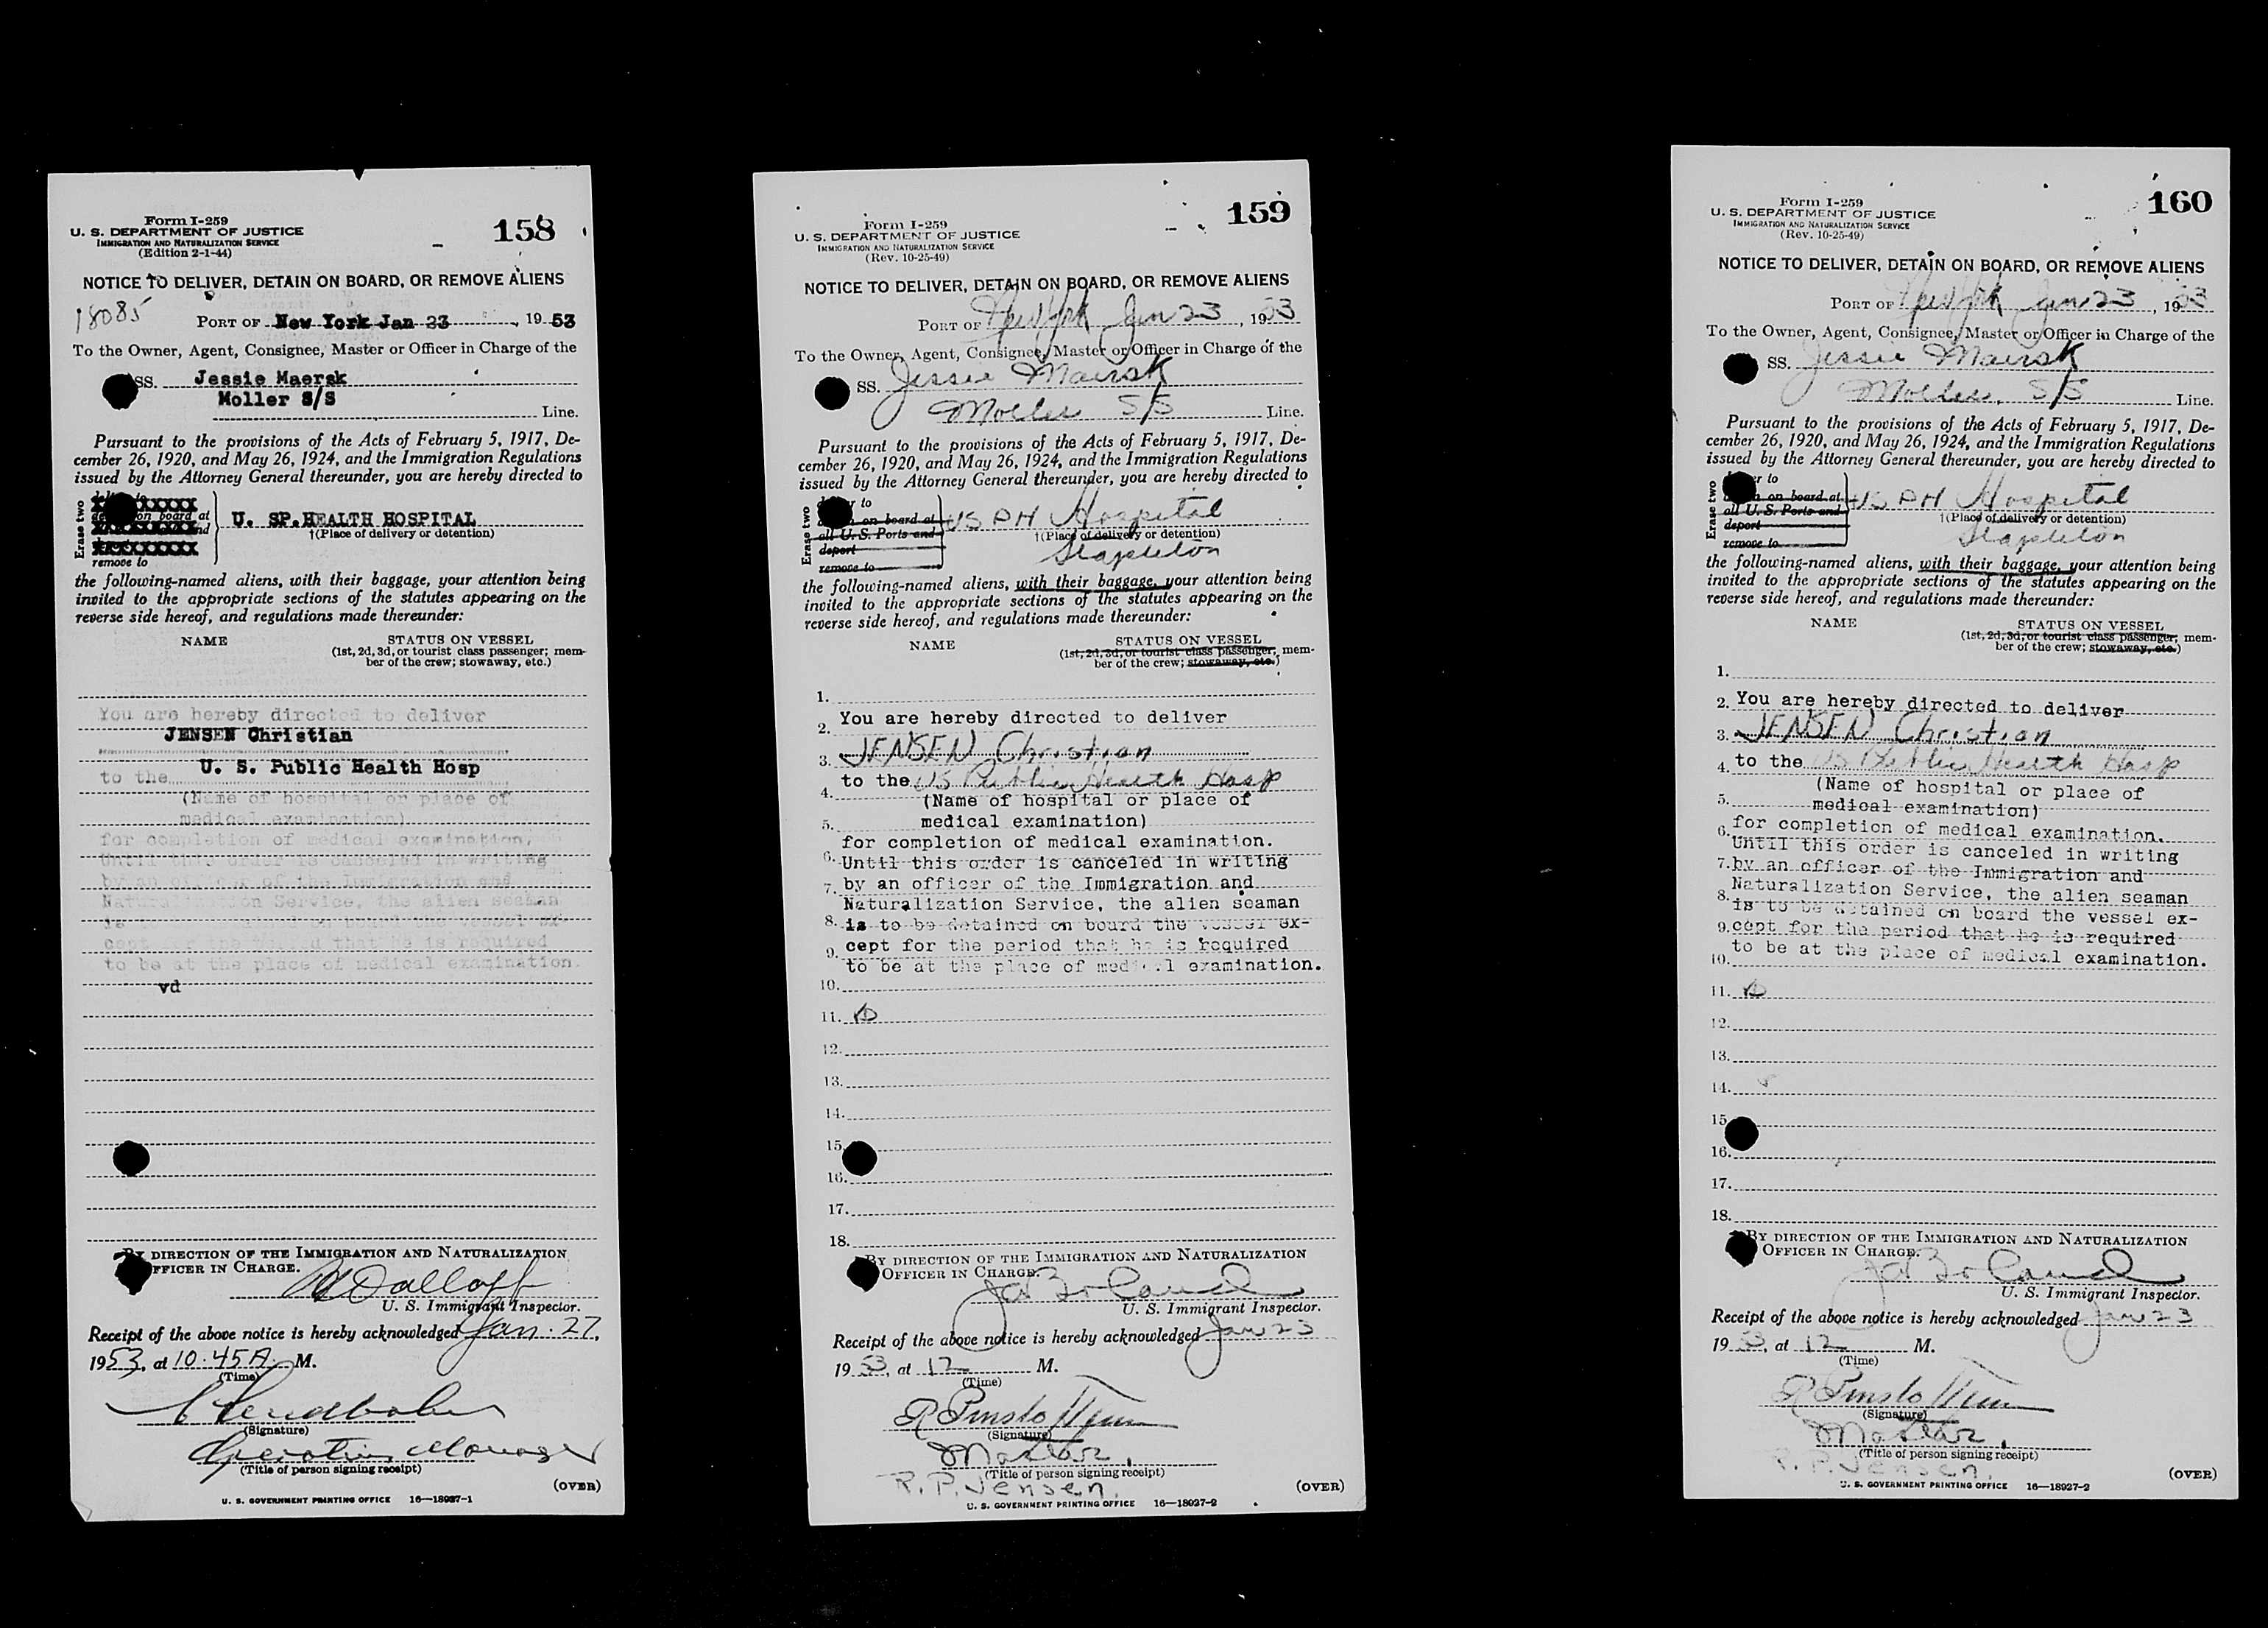 Form I-259
U. S. DEPARTMENT OF JUSTICE
IMMIGRATION AND NATURALIZATION SERVICE
(Edition 2-1-44)
158
NOTICE TO DELIVER, DETAIN ON BOARD, OR REMOVE ALIENS
18085
PORT OF New York Jan 23, 1953
To the Owner, Agent, Consignee, Master or Officer in Charge of the
SS. Jessie Maersk
Moller S/S Line.
Pursuant to the provisions of the Acts of February 5, 1917, De-
cember 26, 1920, and May 26, 1924, and the Immigration Regulations
issued by the Attorney General thereunder, you are hereby directed to
Erase two
on board at
U. SP.HEALTH HOSPITAL
†(Place of delivery or detention)
remove to
the following-named aliens, with their baggage, your attention being
invited to the appropriate sections of the statutes appearing on the
reverse side hereof, and regulations made thereunder:
NAME STATUS ON VESSEL
(1st, 2d, 3d, or tourist class passenger; mem-
ber of the crew; stowaway, etc.)
You are hereby directed to deliver
JENSEN Christian
to the U. S. Public Health Hosp
(Name of hospital or place of
medical examination)
for completion of medical examination.
Until this order is canceled in writing
by an officer of the Immigration and
Naturalization Service, the alien seaman
is to be detained on board the vessel ex-
cept for the period that he is required
to be at the place of medical examination.
vd
BY DIRECTION OF THE IMMIGRATION AND NATURALIZATION
OFFICER IN CHARGE.
U. S. Immigrant Inspector.
Receipt of the above notice is hereby acknowledged Jan. 27,
1953, at 10.45A. M.
(Time)
(Signature)
Operating Manager
(Title of person signing receipt)
(OVER)
U. S. GOVERNMENT PRINTING OFFICE 16—18927-1
Form I-259
U. S. DEPARTMENT OF JUSTICE
IMMIGRATION AND NATURALIZATION SERVICE
(Rev. 10-25-49)
159
NOTICE TO DELIVER, DETAIN ON BOARD, OR REMOVE ALIENS
PORT OF New York Jan 23, 1953
To the Owner, Agent, Consignee, Master or Officer in Charge of the
SS. Jessie Maersk
Moller S/S Line.
Pursuant to the provisions of the Acts of February 5, 1917, De-
cember 26, 1920, and May 26, 1924, and the Immigration Regulations
issued by the Attorney General thereunder, you are hereby directed to
Erase two
to
on board at
all U. S. Ports and
deport
remove to
US PH Hospital
†(Place of delivery or detention)
Stapleton
the following-named aliens, with their baggage, your attention being
invited to the appropriate sections of the statutes appearing on the
reverse side hereof, and regulations made thereunder:
NAME STATUS ON VESSEL
(1st, 2d, 3d, or tourist class passenger; mem-
ber of the crew; stowaway, etc.)
1.
2. You are hereby directed to deliver
3. JENSEN Christian
4. to the US Public Health Hosp
(Name of hospital or place of
5. medical examination)
for completion of medical examination.
6. Until this order is canceled in writing
7. by an officer of the Immigration and
Naturalization Service, the alien seaman
8. is to be detained on board the vessel ex-
9. cept for the period that he is required
to be at the place of medical examination.
10.
11.
12.
13.
14.
15.
16.
17.
18.
BY DIRECTION OF THE IMMIGRATION AND NATURALIZATION
OFFICER IN CHARGE.
U. S. Immigrant Inspector.
Receipt of the above notice is hereby acknowledged Jan 23
1953, at 12 M.
(Time)
(Signature)
Master.
(Title of person signing receipt)
R. P. Jensen.
(OVER)
U. S. GOVERNMENT PRINTING OFFICE 16—18927-2
Form I-259
U. S. DEPARTMENT OF JUSTICE
IMMIGRATION AND NATURALIZATION SERVICE
(Rev. 10-25-49)
160
NOTICE TO DELIVER, DETAIN ON BOARD, OR REMOVE ALIENS
PORT OF New York Jan 23, 1953
To the Owner, Agent, Consignee, Master or Officer in Charge of the
SS. Jessie Maersk
Moller. S/S Line.
Pursuant to the provisions of the Acts of February 5, 1917, De-
cember 26, 1920, and May 26, 1924, and the Immigration Regulations
issued by the Attorney General thereunder, you are hereby directed to
Erase two
to
on board at
all U. S. Ports and
deport
remove to
US PH Hospital
†(Place of delivery or detention)
Stapleton
the following-named aliens, with their baggage, your attention being
invited to the appropriate sections of the statutes appearing on the
reverse side hereof, and regulations made thereunder:
NAME STATUS ON VESSEL
(1st, 2d, 3d, or tourist class passenger; mem-
ber of the crew; stowaway, etc.)
1.
2. You are hereby directed to deliver
3. JENSEN Christian
4. to the US Public Health Hosp
(Name of hospital or place of
5. medical examination)
6. for completion of medical examination.
Until this order is canceled in writing
7. by an officer of the Immigration and
Naturalization Service, the alien seaman
8. is to be detained on board the vessel ex-
9. cept for the period that he is required
to be at the place of medical examination.
10.
11.
12.
13.
14.
15.
16.
17.
18.
BY DIRECTION OF THE IMMIGRATION AND NATURALIZATION
OFFICER IN CHARGE.
U. S. Immigrant Inspector.
Receipt of the above notice is hereby acknowledged Jan 23
1953, at 12 M.
(Time)
(Signature)
Master.
(Title of person signing receipt)
R. P. Jensen.
(OVER)
U. S. GOVERNMENT PRINTING OFFICE 16—18927-2